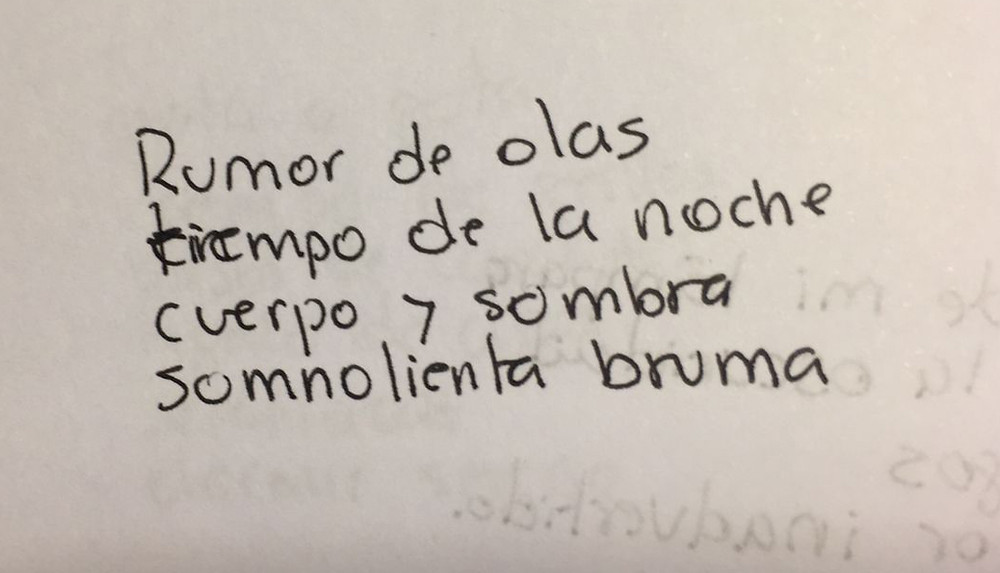 Rumor de olas
tiempo de la noche
cuerpo y sombra
somnolienta bruma